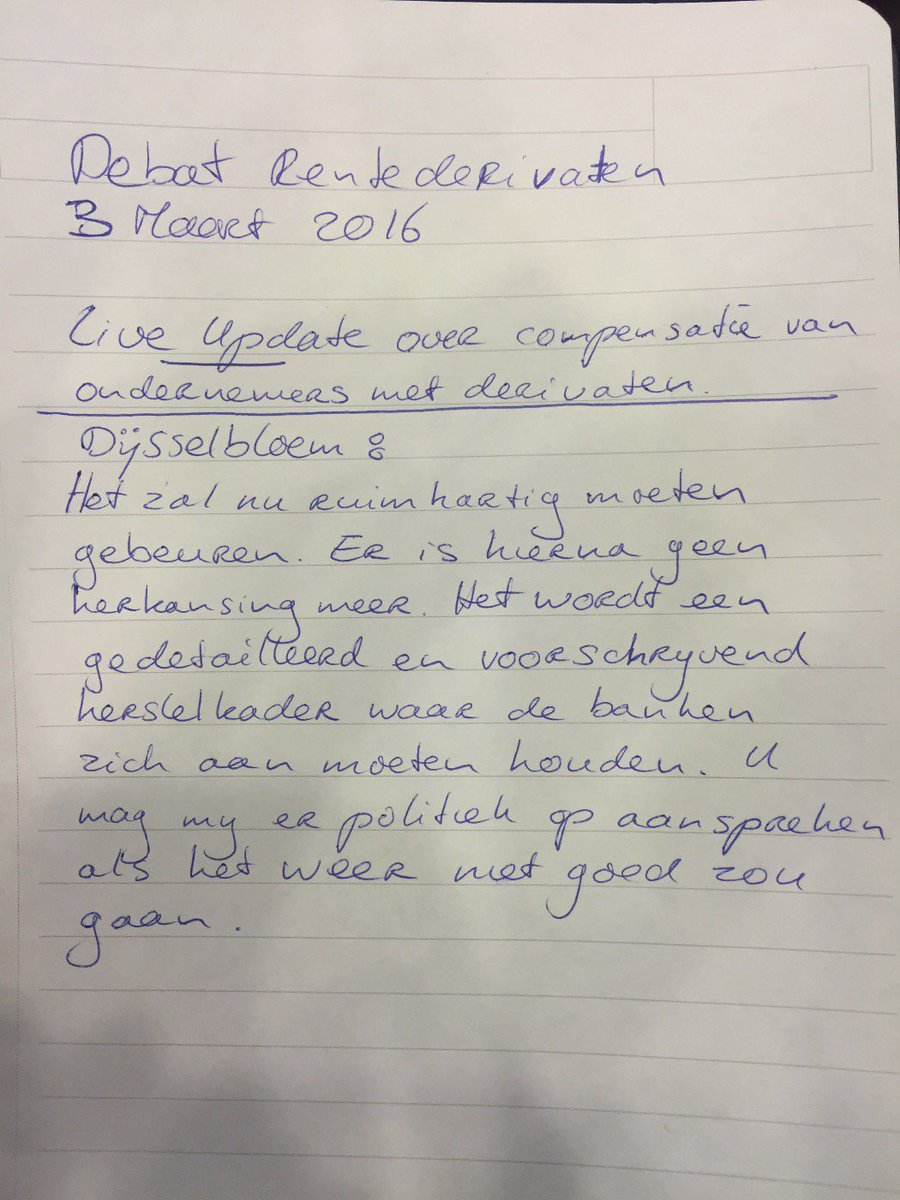 Debat Rentederivaten
3 Maart 2016
Live Update over compensatie van
ondernemers met derivaten.
Dijsselbloem :
Het zal nu ruimhartig moeten
gebeuren. Er is hierna geen
herkansing meer. Het wordt een
gedetailleerd en voorschryvend
herstelkader waar de banken
zich aan moeten houden. U
mag my er politiek op aanspreken
als het weer niet goed zou
gaan.